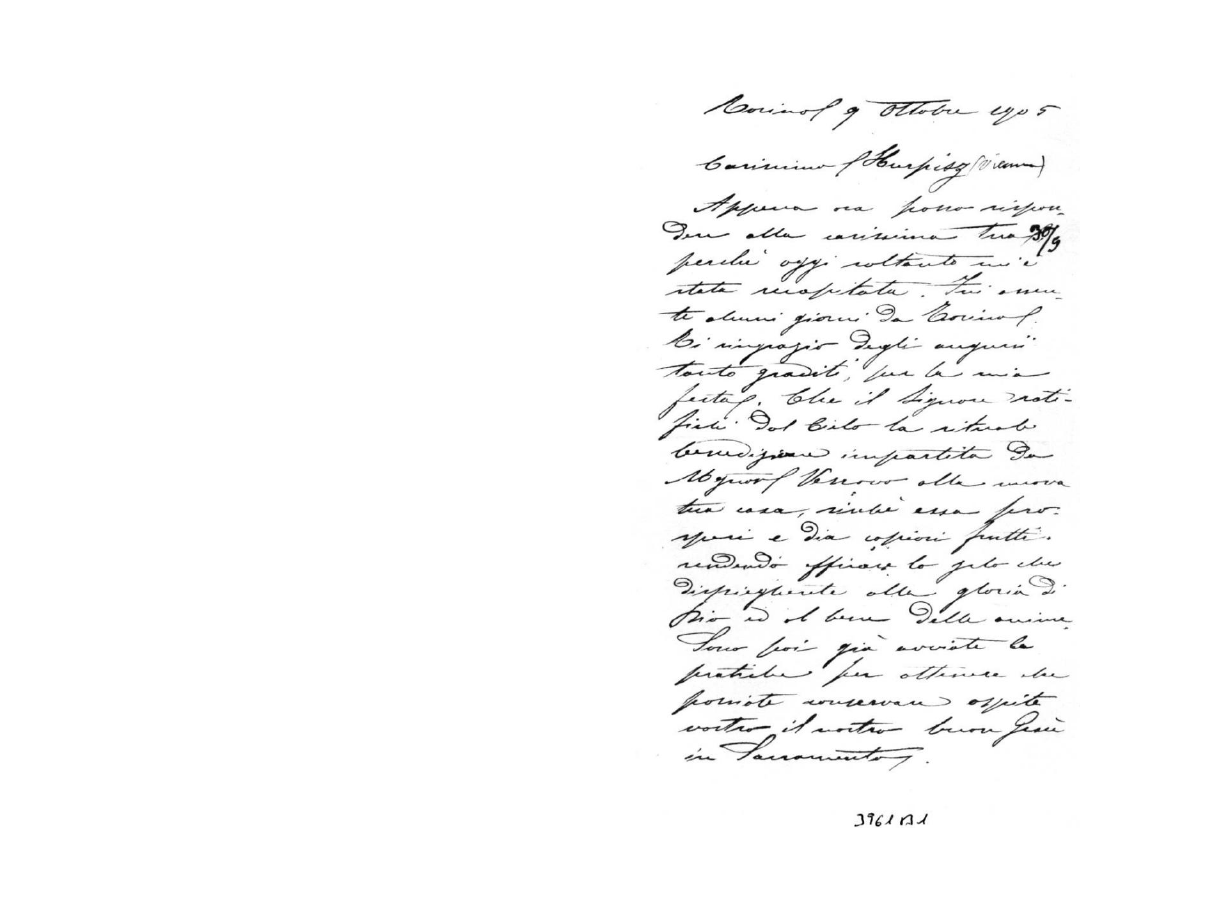 Torino 9 Ottobre 1905
Carissimo Hurpisz (Vienna)
Appena ora posso rispon-
dere alla carissima tua 30/9
perchè oggi soltanto mi è
stata recapitata. Fui assen-
te alcuni giorni da Torino.
Ti ringrazio degli augurii
tanto graditi, per la mia
festa. Che il Signore rati-
fichi dal Cielo la rituale
benedizione impartita da
Mgnor Vescovo alla nuova
tua casa, sicchè essa pro-
speri e dia copiosi frutti.
rendendo efficace lo zelo che
dispiegherete alla gloria di
Dio ed al bene delle anime.
Sono poi già avviate le
pratiche per ottenere che
possiate conservare ospite
vostro il nostro buon Gesù
in Sacramento.
3961 B1